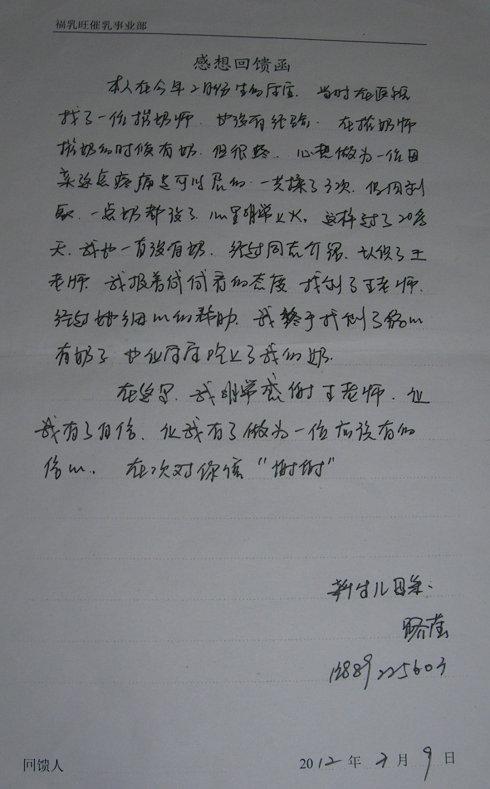 福乳旺催乳事业部
感想回馈函
本人在今年2月份生的宝宝. 当时在医院
找了一位揉奶师. 也没有经验. 在揉奶师
揉奶的时候有奶. 但很疼. 心想做为一位母
亲这点疼痛是可以忍的. 一共揉了3次, 但回到
家. 一点奶都没了. 心里非常上火. 这样过了20多
天. 我也一直没有奶. 经过同志介绍. 认识了王
老师. 我报着试试看的态度 找到了王老师.
经过她细心的帮助. 我终于找到了信心
有奶了 也让宝宝吃上了我的奶.
在这里. 我非常感谢王老师. 让
我有了自信. 让我有了做为一位 应该有的
信心. 在次对你说“谢谢”
新生儿母亲.
13889225603
回馈人 2012 年 3 月 9 日